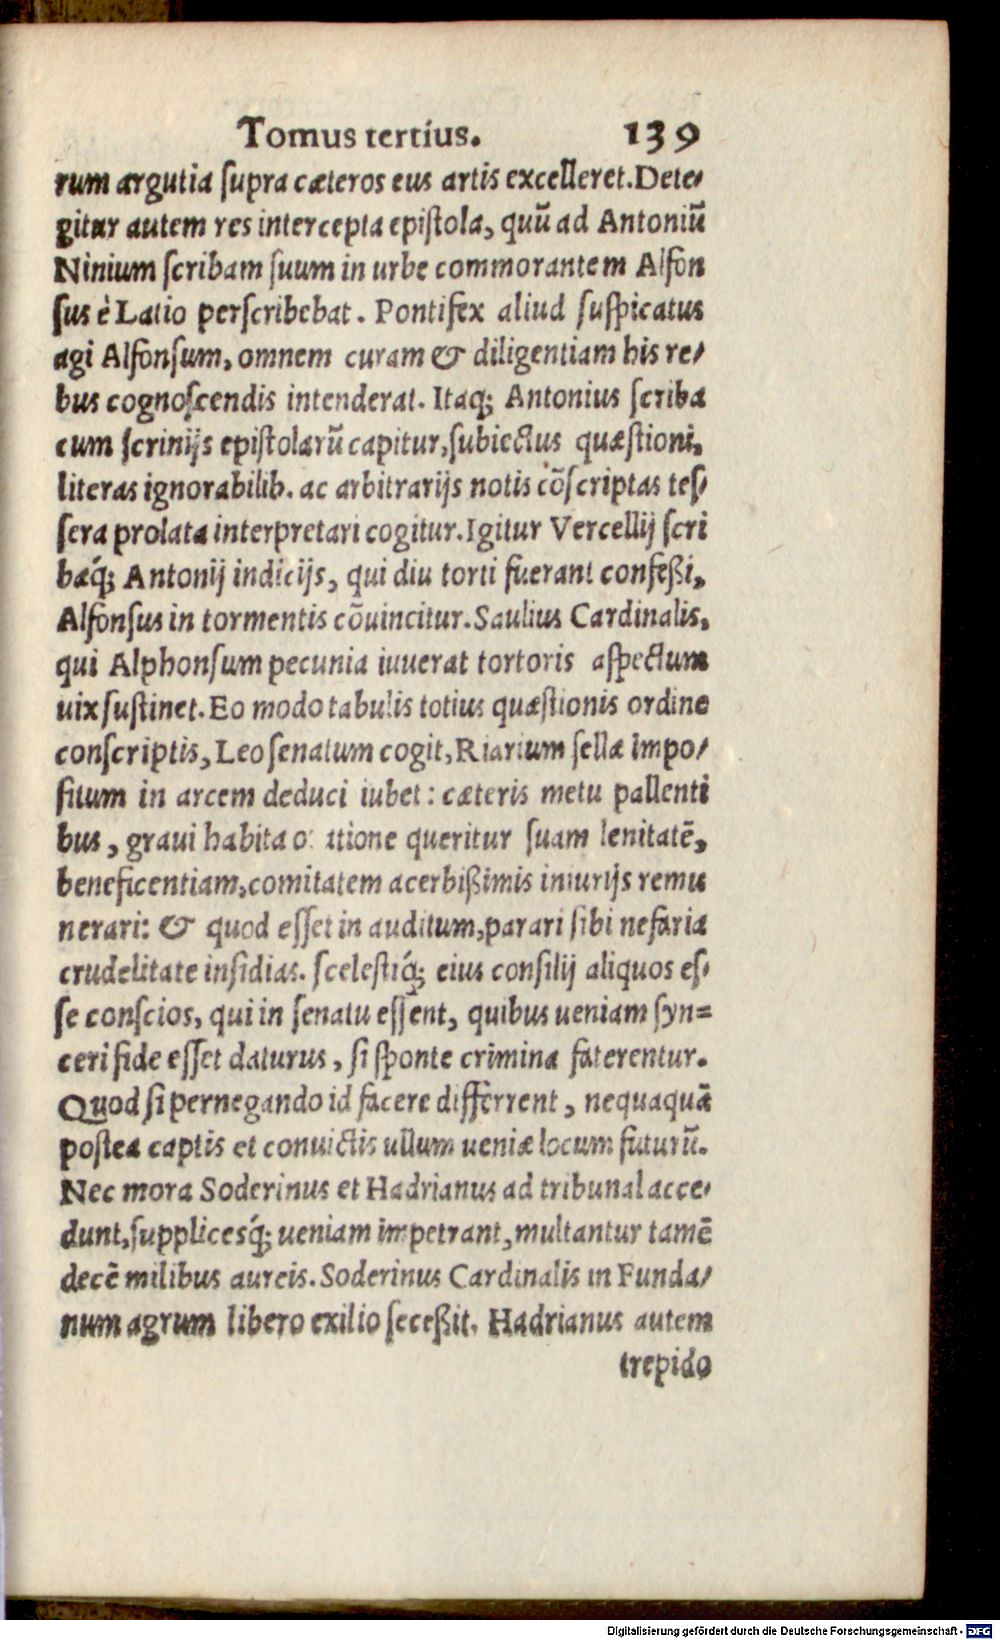 Tomus tertius. 139
rum argutia ſupra cæteros eus artis excelleret. Dete-
gitur autem res intercepta epiſtola, quū ad Antoniū
Ninium ſcribam ſuum in urbe commorantem Alfon
ſus è Latio perſcribebat. Pontifex aliud ſuſpicatus
agi Alfonſum, omnem curam & diligentiam his re/
bus cognoſcendis intenderat. Itaq; Antonius ſcriba
cum ſcrinijs epiſtolarū capitur, ſubiectus quæſtioni,
literas ignorabilib. ac arbitrarijs notis cōſcriptas teſ-
ſera prolata interpretari cogitur. Igitur Vercellij ſcri
bæq́; Antonij indicijs, qui diu torti fuerant confeßi,
Alfonſus in tormentis cōuincitur. Saulius Cardinalis,
qui Alphonſum pecunia iuuerat tortoris aſpectum
uix ſuſtinet. Eo modo tabulis totius quæſtionis ordine
conſcriptis, Leo ſenatum cogit, Riarium ſellæ impo/
ſitum in arcem deduci iubet: cæteris metu pallenti
bus, graui habita o tione queritur ſuam lenitatē,
beneficentiam, comitatem acerbißimis iniurijs remu
nerari: & quod eſſet in auditum, parari ſibi nefaria
crudelitate inſidias. ſceleſtiq́; eius conſilij aliquos eſ-
ſe conſcios, qui in ſenatu eſſent, quibus ueniam ſyn=
ceri fide eſſet daturus, ſi ſponte crimina faterentur.
Quod ſi pernegando id facere differrent, nequaquā
poſtea captis et conuictis ullum ueniæ locum futurū.
Nec mora Soderinus et Hadrianus ad tribunal acce-
dunt, ſupplicesq́; ueniam impetrant, multantur tamē
decē milibus aureis. Soderinus Cardinalis in Funda/
num agrum libero exilio ſeceßit. Hadrianus autem
trepido
Digitalisierung gefördert durch die Deutsche Forschungsgemeinschaft - DFG